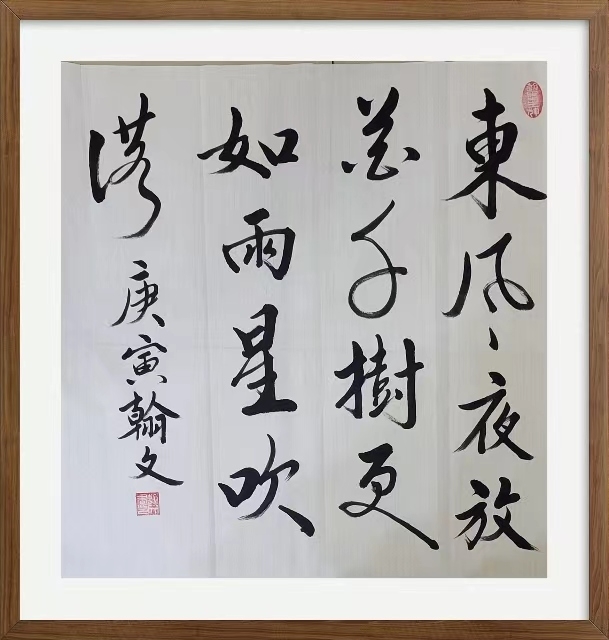 東風、夜放
花千樹更
如雨星吹
落 庚寅翰文